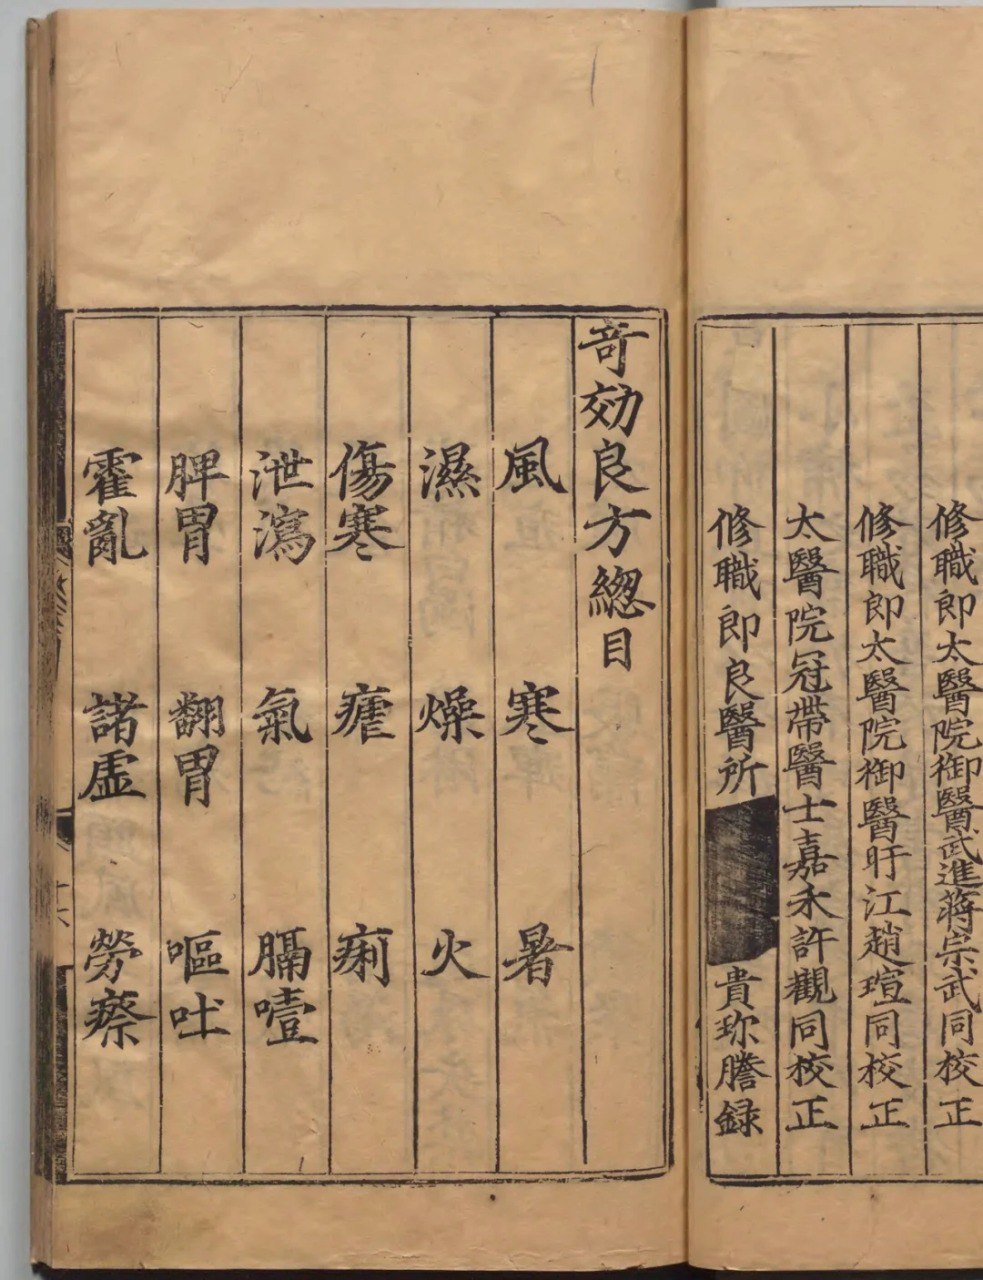 修職郎太醫院御醫武進蔣宗武同校正
修職郎太醫院御醫旴江趙瑄同校正
太醫院冠帶醫士嘉禾許觀同校正
修職郎良醫所
貴珎謄録
竒効良方緫目
風 寒 暑
濕 燥 火
傷寒 瘧 痢
泄瀉 氣 膈噎
脾胃 翻胃 嘔吐
霍亂 諸虛 勞瘵